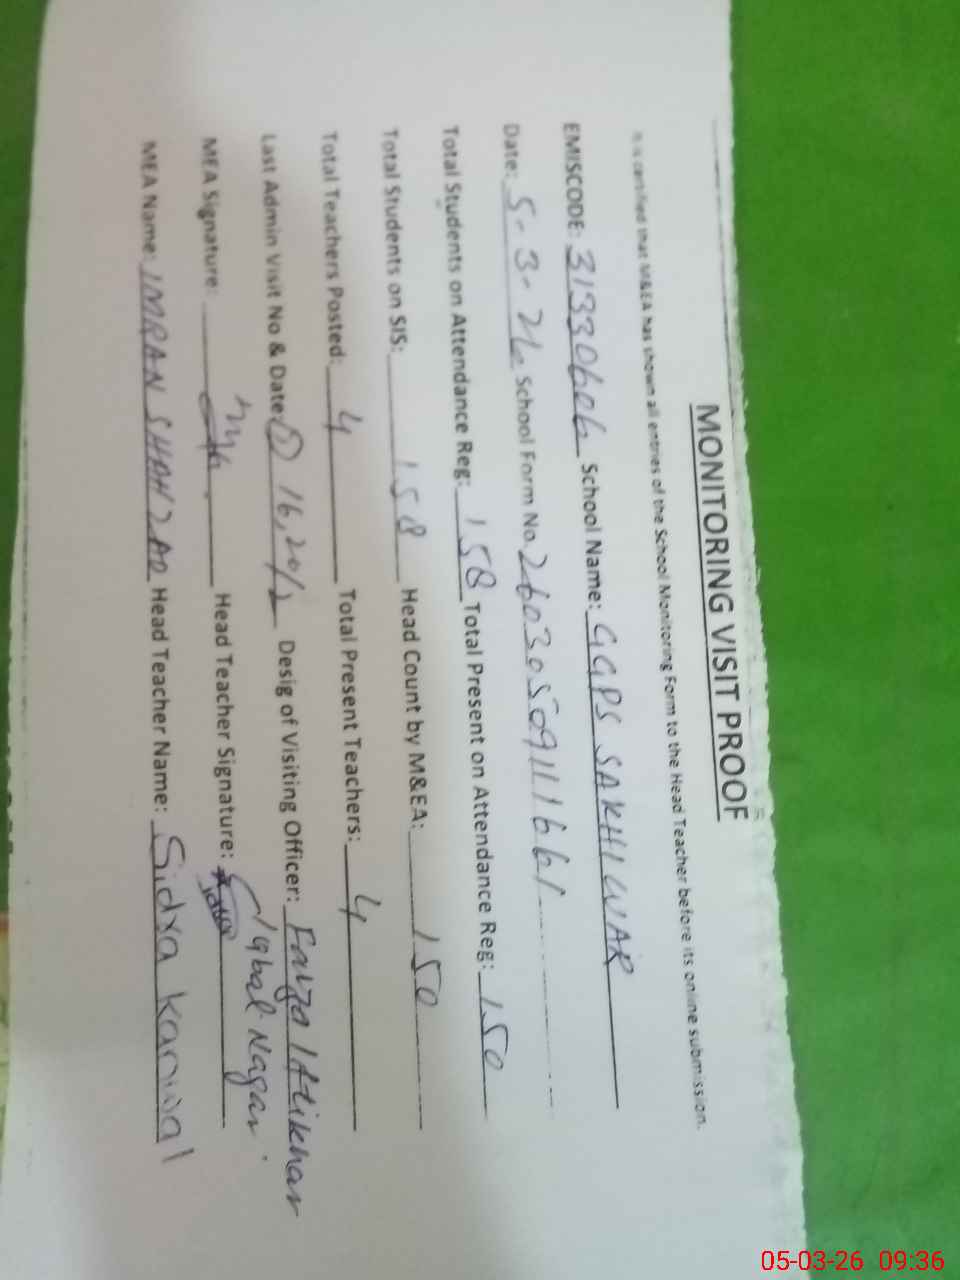 MONITORING VISIT PROOF
It is certified that M&EA has shown all entries of the School Monitoring Form to the Head Teacher before its online submission.
EMISCODE: 31330606 School Name: GGPS SAKHI WAR
Date: 5-3-26 School Form No. 2603050911661
Total Students on Attendance Reg: 158 Total Present on Attendance Reg: 150
Total Students on SIS: 158 Head Count by M&EA: 150
Total Teachers Posted: 4 Total Present Teachers: 4
Last Admin Visit No & Date: 16, 20/2 Desig of Visiting Officer: Iftikhar
Iqbal Nagar
MEA Signature: Head Teacher Signature:
MEA Name: IMRAN SHAHZAD Head Teacher Name: Sidra Kanwal
05-03-26 09:36